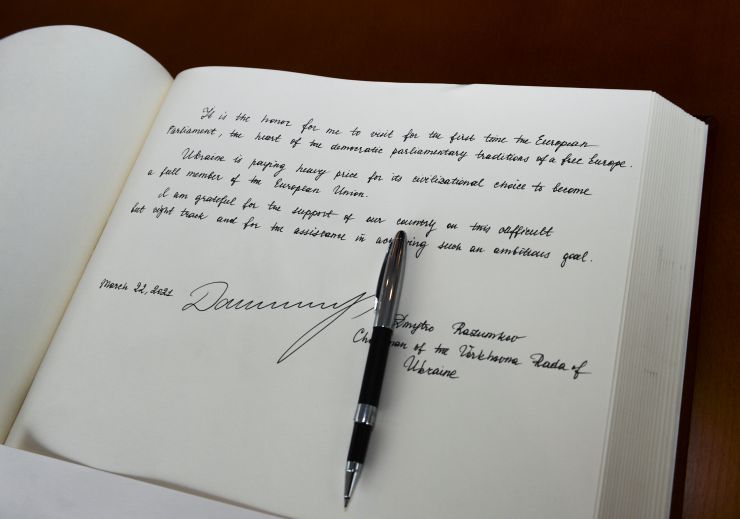 It is the honor for me to visit for the first time the European
Parliament, the heart of the democratic parliamentary traditions of a free Europe.
Ukraine is paying heavy price for its civilizational choice to become
a full member of the European Union.
I am grateful for the support of our country on this difficult
but right track and for the assistance in such an ambitious goal.
March 22, 2021
Dmytro Razumkov
of the Verkhovna Rada of
Ukraine